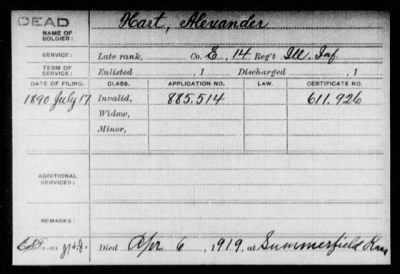 DEAD Hart, Alexander
NAME OF SOLDIER:
SERVICE: Late rank, Co. E, 14 Reg't Ill. Inf.
TERM OF SERVICE: Enlisted , 1 Discharged , 1
DATE OF FILING. CLASS. APPLICATION NO. LAW. CERTIFICATE NO.
1890 July 17 Invalid, 885.514 611.926
Widow,
Minor,
ADDITIONAL SERVICES:
REMARKS:
Died Apr 6, 1919, at Summerfield Kans